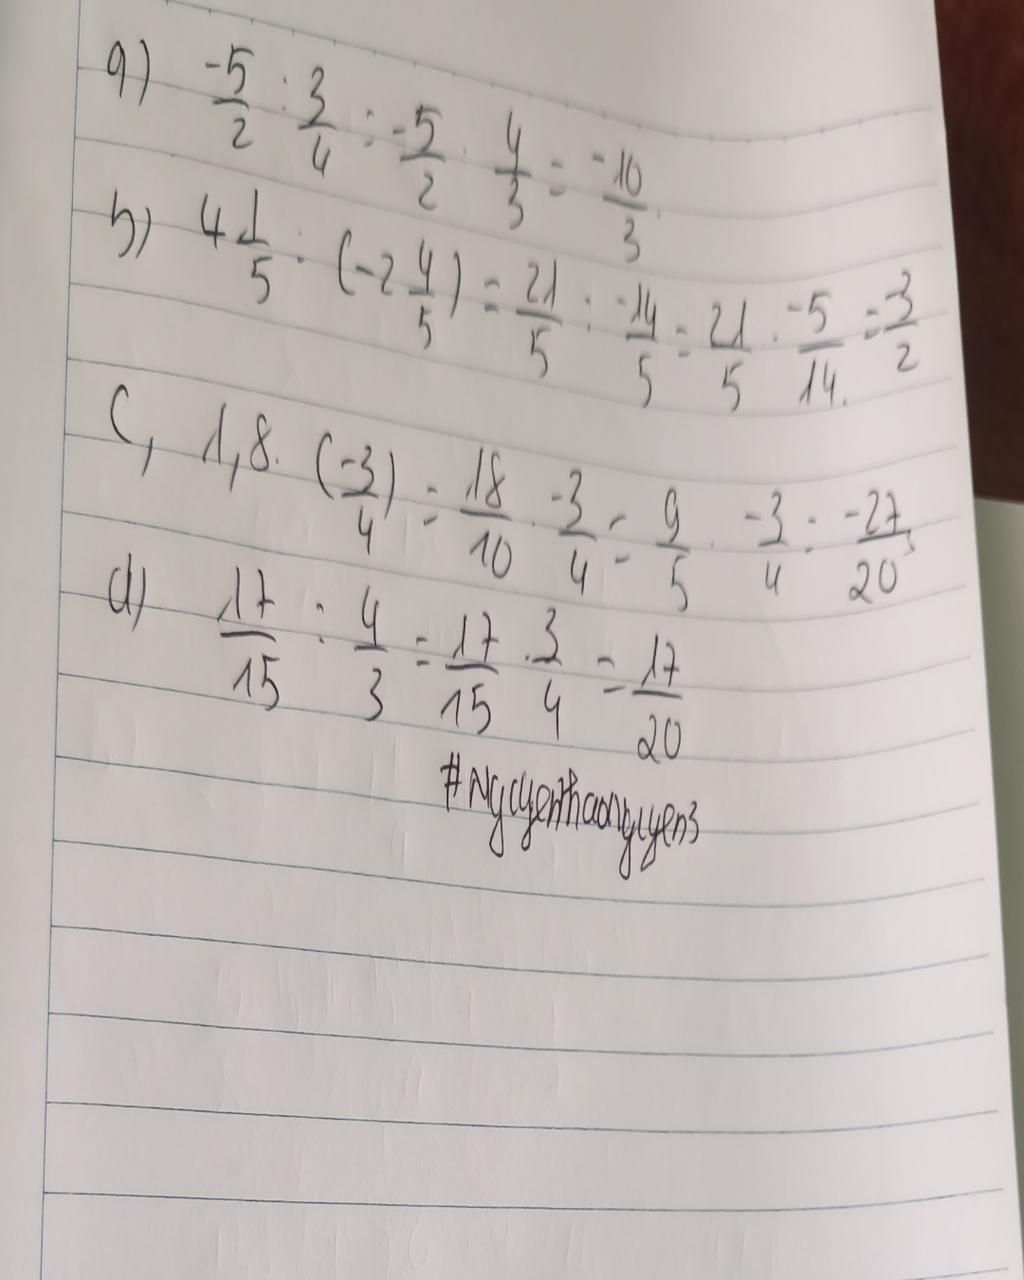 a) -5/2 : 3/4 = -5/2 . 4/3 = -10/3
b) 4 1/5 : (-2 4/5) = 21/5 : -14/5 = 21/5 . -5/14 = -3/2
c, 1,8 . (-3/4) = 18/10 . -3/4 = 9/5 . -3/4 = -27/20
d) 17/15 : 4/3 = 17/15 . 3/4 = 17/20
#Nguyenthaonguyen3